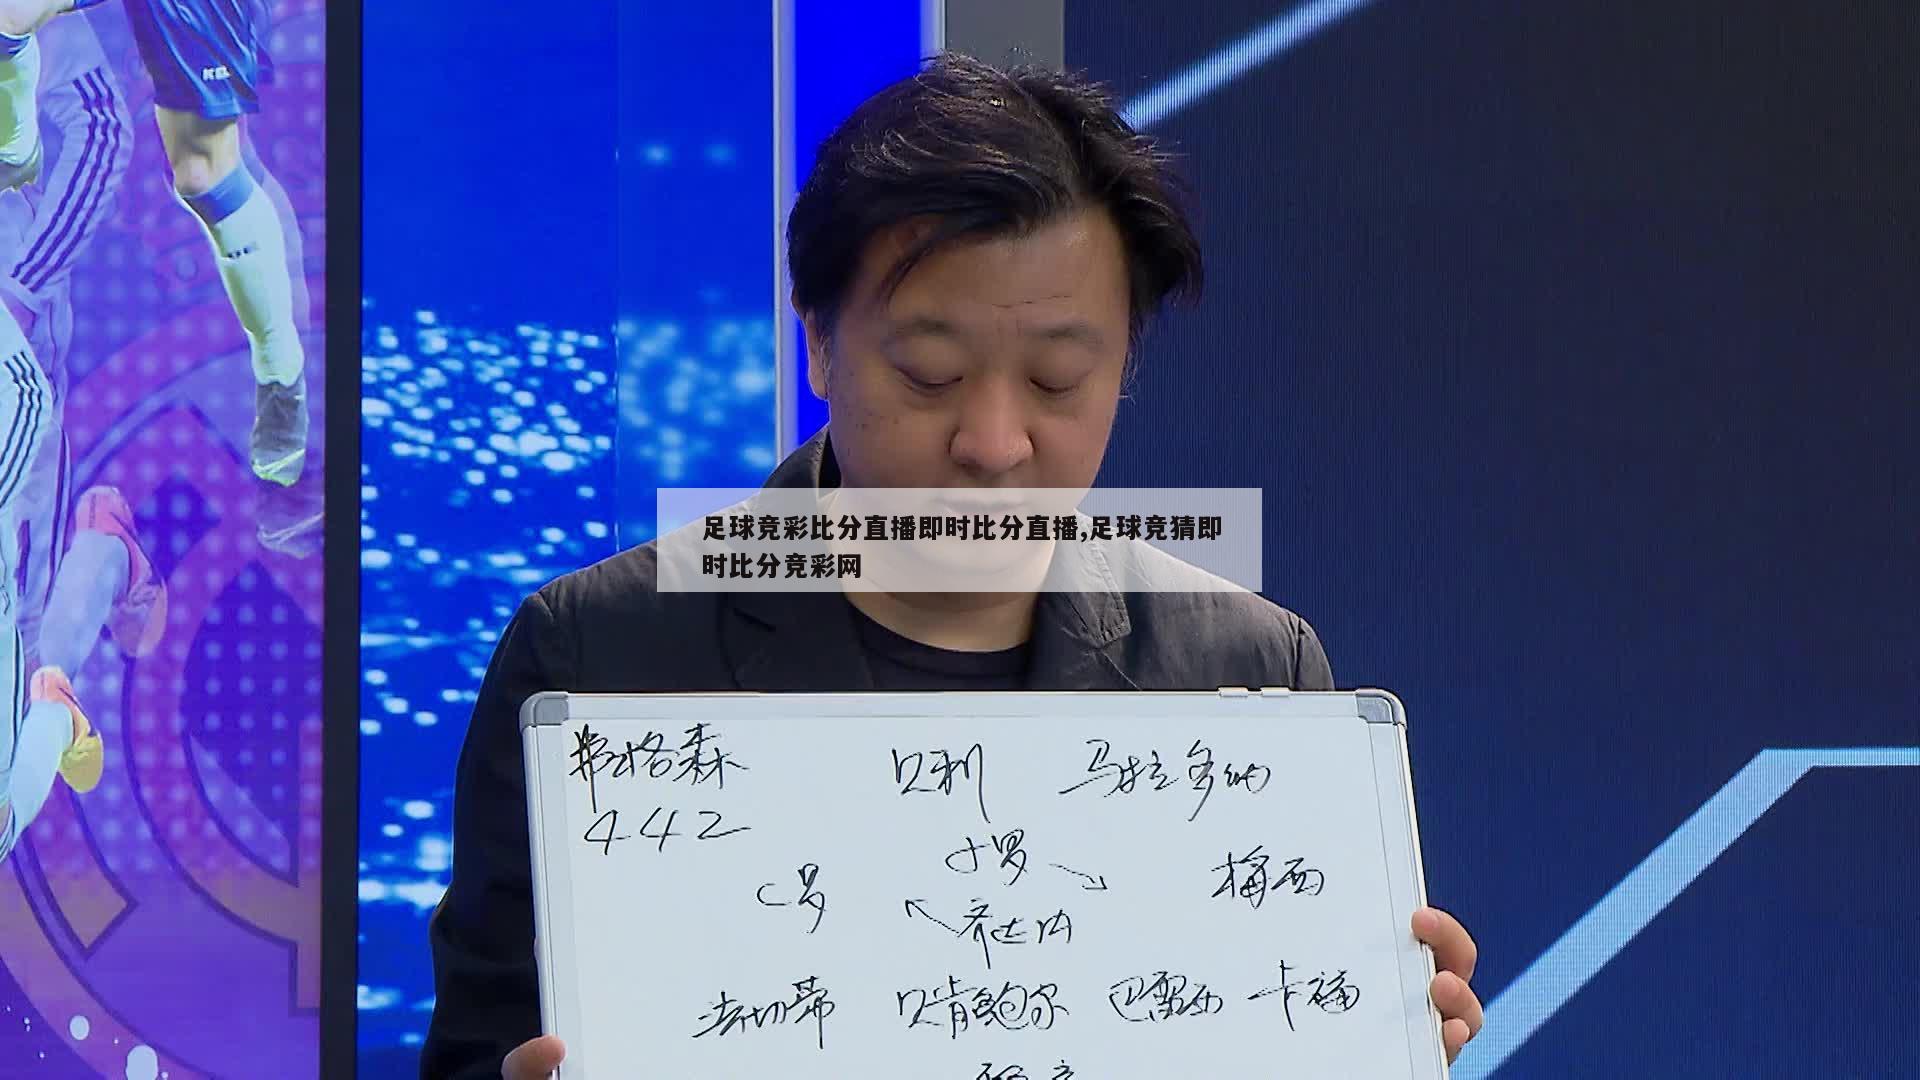 足球竞彩比分直播即时比分直播,足球竞猜即
时比分竞彩网
弗格森 贝利 马拉多纳
442
C罗 小罗 梅西
齐达内
法切蒂 贝肯鲍尔 巴雷西 卡福